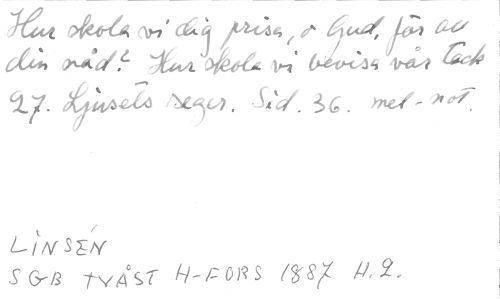 Hur skola vi dig prisa, o Gud, för all
din nåd? Hur skola vi bevisa vår tack
27. Ljusets seger. Sid. 36. mel-not.
LINSÉN
SGB TVÅST H-FORS 1887 H.2.